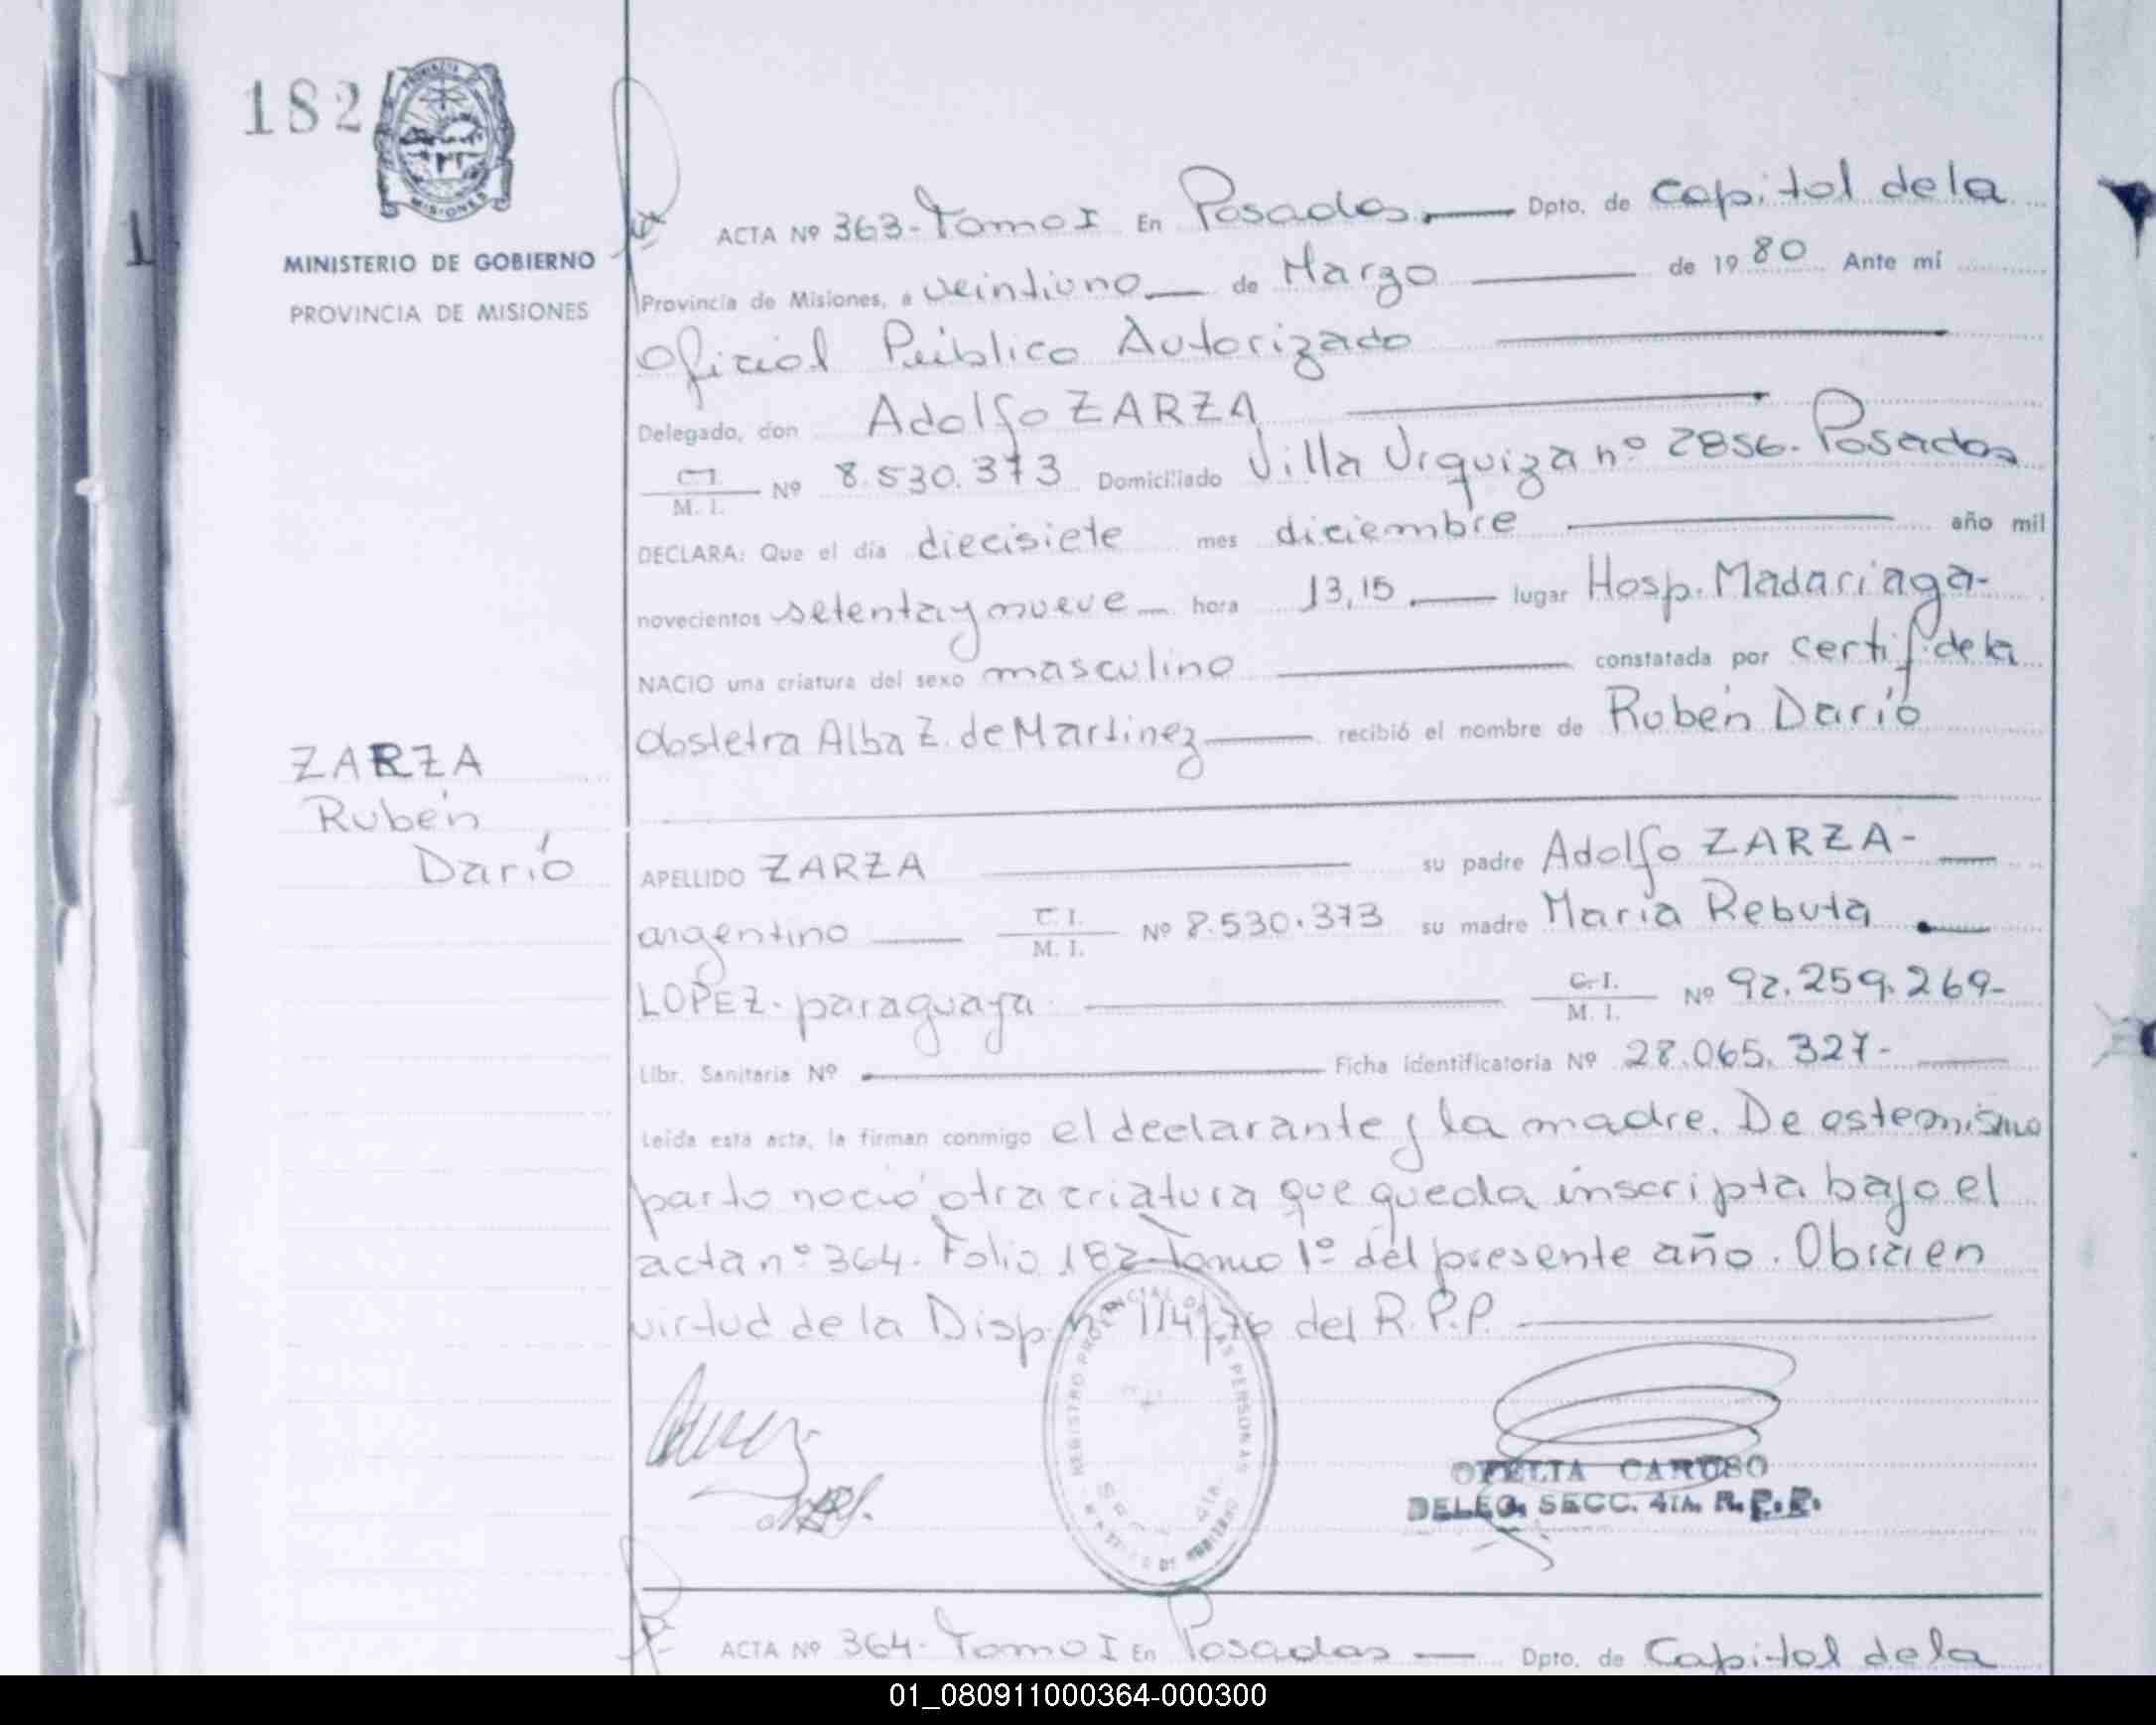 182
MISIONES
MINISTERIO DE GOBIERNO
PROVINCIA DE MISIONES
1
ACTA Nº 363-Tomo I En Posadas. Dpto. de Capital de la
Provincia de Misiones, a veintiuno de Marzo de 1980 Ante mí
Oficial Público Autorizado
Delegado, don Adolfo ZARZA
C.I.
M. I.
Nº 8.530.373 Domiciliado Villa Urquiza nº 2856. Posadas
DECLARA: Que el día diecisiete mes diciembre año mil
novecientos setenta y nueve hora 13,15 lugar Hosp. Madariaga-
NACIO una criatura del sexo masculino constatada por certif de la
Obstetra Alba Z. de Martinez recibió el nombre de Rubén Darío
ZARZA
Rubén
Darío
APELLIDO ZARZA su padre Adolfo ZARZA-
argentino C.I.
M. I.
Nº 8.530.373 su madre María Rebuta
LOPEZ- paraguaya C.I.
M. I.
Nº 92.259.269-
Libr. Sanitaria Nº Ficha identificatoria Nº 28.065.327-
Leída esta acta, la firman conmigo el declarante y la madre. De este mismo
parto nació otra criatura que queda inscripta bajo el
acta nº 364. Folio 182-Tomo 1º del presente año. Obra en
virtud de la Disp. nº 114/76 del R.P.P.
REGISTRO PROVINCIAL DE LAS PERSONAS
OFELIA CARUSO
DELEG. SECC. 4TA. R.P.P.
ACTA Nº 364- Tomo I En Posadas Dpto. de Capital de la
01_080911000364-000300